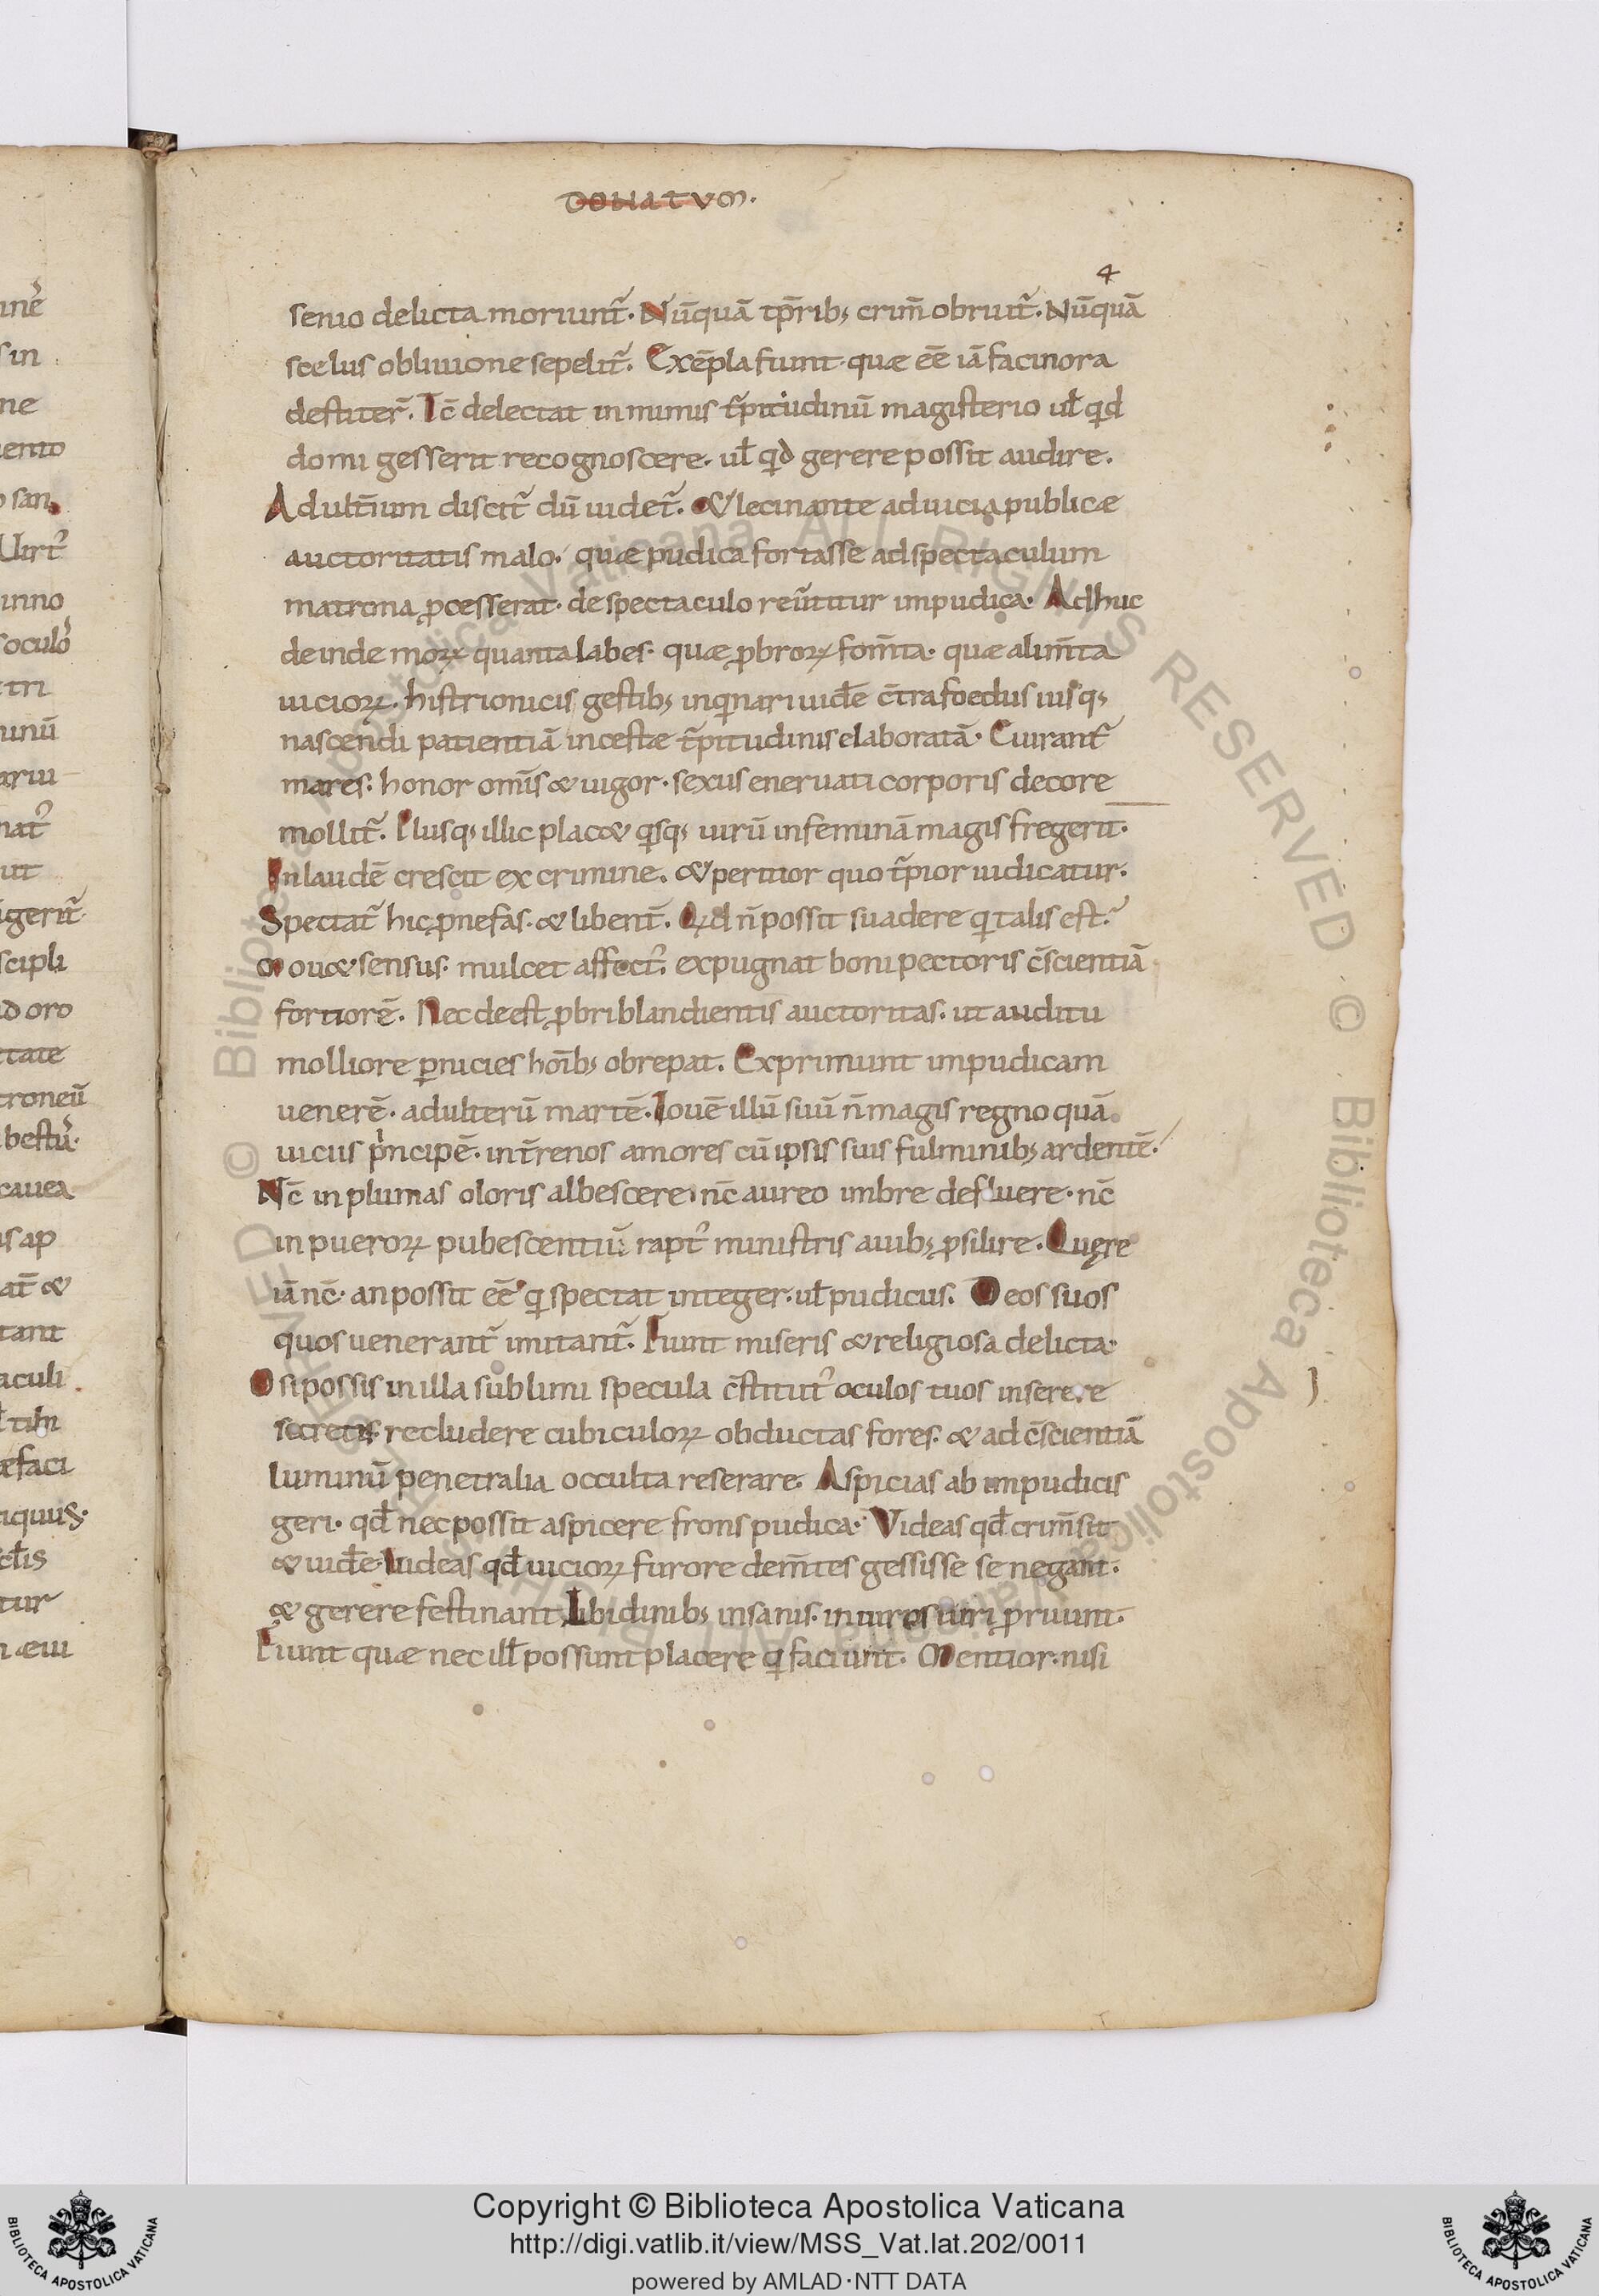 DONATVM.
4
senio delicta moriunt᷑. Nu̅qua̅ tp̅rib; crim̅ obruit᷑. Nu̅qua̅
scelus obliuione sepelit᷑. Exe̅pla fiunt. quæ ee̅ ia̅ facinora
destiter̅. Tc̅ delectat in mimis t᷑pitudinu̅ magisterio ul̅ qd
domi gesserit recognoscere. ul̅ qd gerere possit audire.
Adult̅ium discit᷑ du̅ uidet᷑. & lecinante ad uicia publicæ
auctoritatis malo. quæ pudica fortasse ad spectaculum
matrona ꝓcesserat. de spectaculo reu̅titur impudica. Adhuc
deinde moꝝ quanta labes. quæ ꝓbroꝝ fom̅ta. quæ alim̅ta
uicioꝝ. histrionicis gestib; inqnari uide̅ c̅tra foedus iusq;
nascendi patientia̅ incestæ t᷑pitudinis elaborata̅. Euirant᷑
mares. honor om̅is & uigor. sexus eneruati corporis decore
mollit᷑. Plusq; illic plac& qsq; uiru̅ in femina̅ magis fregerit.
In laude̅ crescit ex crimine. & peritior quo t᷑pior iudicatur.
Spectat᷑ hic ꝓ nefas. & libent̅. Qd n̅ possit suadere q talis est?
Mou& sensus. mulcet affect᷒. expugnat boni pectoris c̅scientia̅
fortiore̅. Nec deest ꝓbri blandientis auctoritas. ut auditu
molliore ꝑnicies ho̅ib; obrepat. Exprimunt impudicam
uenere̅. adulteru̅ marte̅. Ioue̅ illu̅ suu̅ n̅ magis regno qua̅
uiciis pⁱncipe̅. in t̅renos amores cu̅ ipsis suis fulminib; ardente̅.
Nc̅ in plumas oloris albescere. nc̅ aureo imbre defluere. nc̅
in pueroꝝ pubescentiu̅ rapt᷒ ministris auib; ꝓsilire. Quęre
ia̅ nc̅. an possit ee̅ q spectat integer. ul̅ pudicus. Deos suos
quos uenerant᷑ imitant᷑. Fiunt miseris & religiosa delicta.
O si possis in illa sublimi specula c̅stitut᷒ oculos tuos inserere
secretis. recludere cubiculoꝝ obductas fores. & ad c̅scientia̅
luminu̅ penetralia occulta reserare. Aspicias ab impudicis
geri. qd̅ nec possit aspicere frons pudica. Videas qd̅ crim̅ sit
& uide̅. Videas qd̅ uicioꝝ furore dem̅tes gessisse se negant.
& gerere festinant. Libidinib; insanis. in uiros uiri ꝓruunt.
Fiunt quæ nec ill̅ possunt placere q faciunt. Mentior. nisi
Copyright © Biblioteca Apostolica Vaticana
http://digi.vatlib.it/view/MSS_Vat.lat.202/0011
powered by AMLAD·NTT DATA